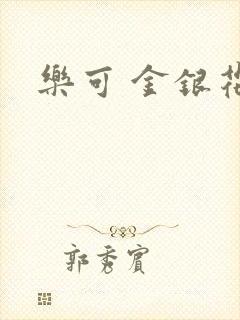 樂可 金銀花
郭秀賓